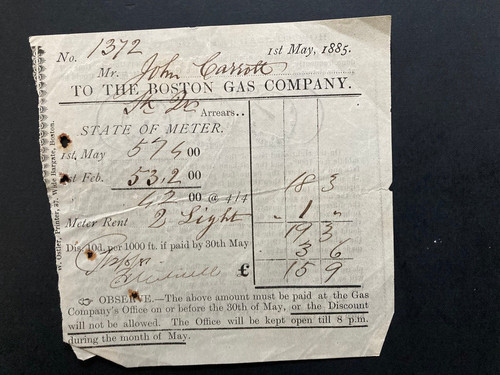 No. 1372 1st May, 1885.
Mr. John Carrott
TO THE BOSTON GAS COMPANY.
Dr Arrears..
STATE OF METER.
1st, May 57400
1st Feb. 53200
4200 @ 4/4 18 3
Meter Rent 2 Light " 1 "
19 3
Dis. 10d. per 1000 ft. if paid by 30th May 3 6
£ 15 9
OBSERVE.—The above amount must be paid at the Gas
Company's Office on or before the 30th of May, or the Discount
will not be allowed. The Office will be kept open till 8 p.m.
during the month of May.
W. Outler, Printer, 27, Wide Bargate, Boston.